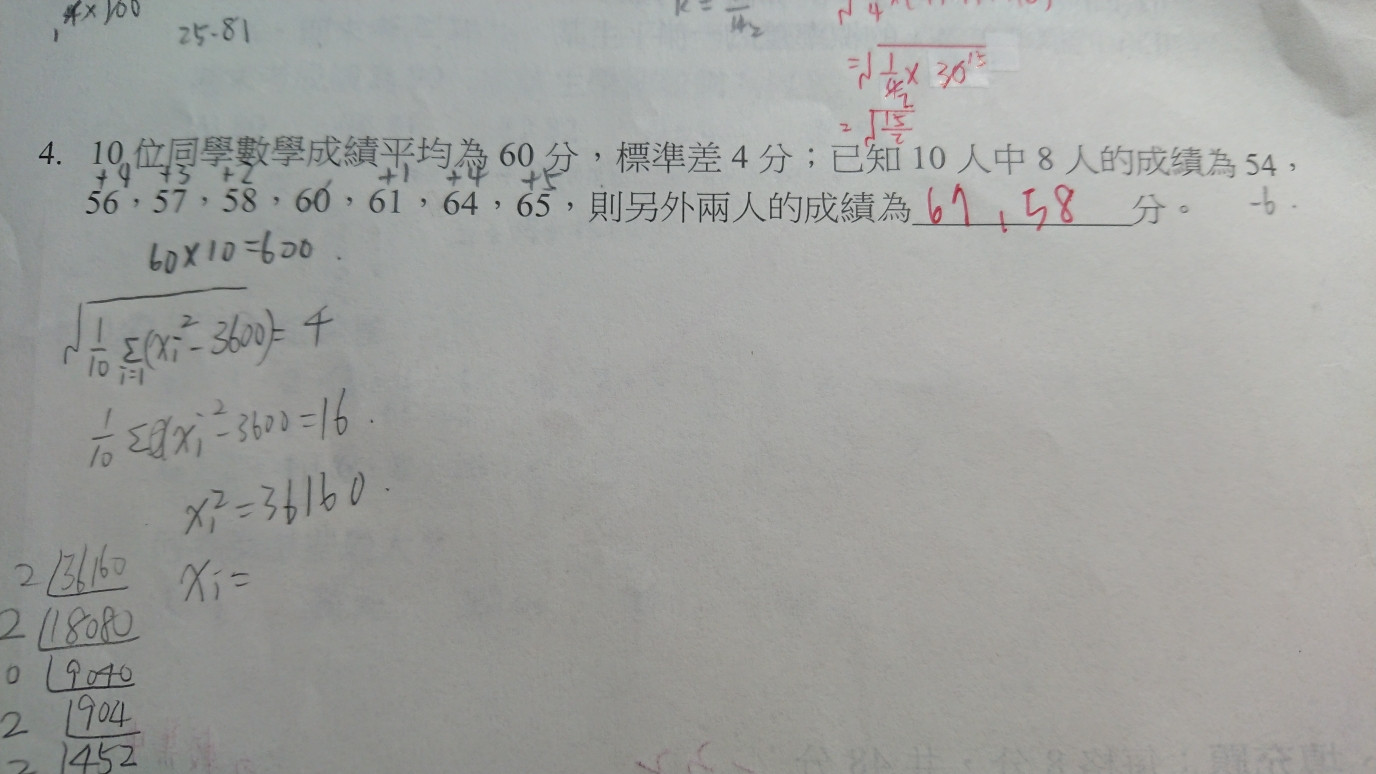 25-81
= √(1/4 × 30
= √(15/2)
4. 10 位同學數學成績平均為 60 分，標準差 4 分；已知 10 人中 8 人的成績為 54，
+4 +3 +2 +1 +4 +5
56，57，58，60，61，64，65，則另外兩人的成績為 67，58 分。 -6.
60×10=600
√(1/10 Σ i=1 (xi²-3600)= 4
1/10 Σ xi²-3600=16.
xi²=36160.
xi=
2 36160
2 18080
0 9040
2 904
2 452